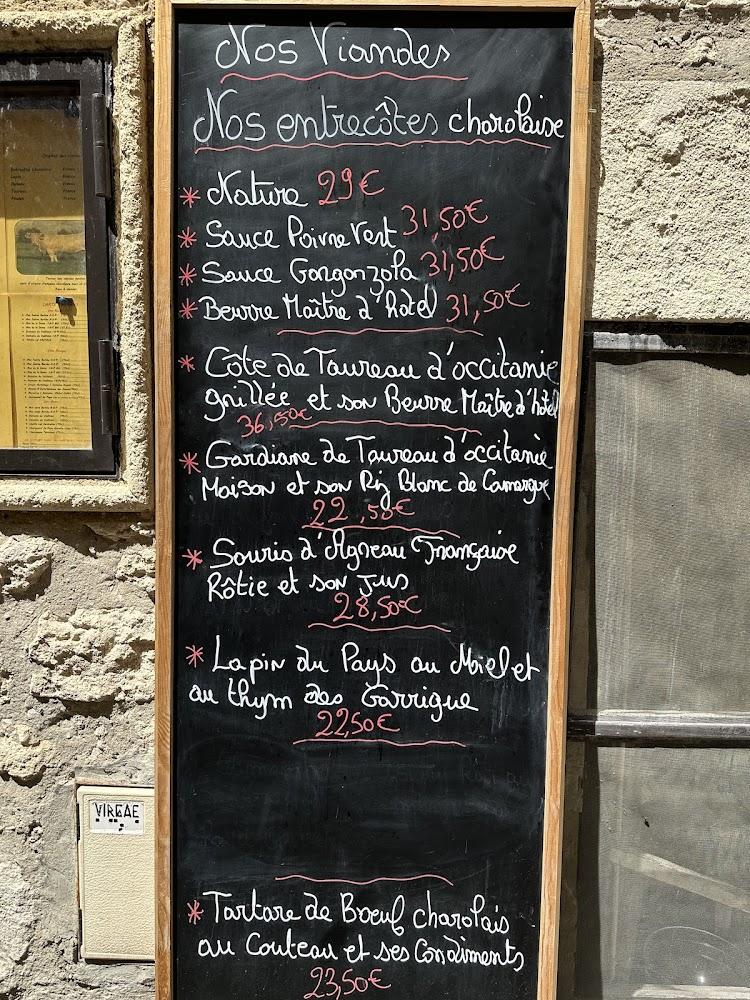 Nos Viandes
Nos entrecôtes charolaise
* Nature 29€
* Sauce Poivre Vert 31,50€
* Sauce Gorgonzola 31,50€
* Beurre Maître d'hôtel 31,50€
* Côte de Taureau d'occitanie
grillée et son Beurre Maître d'hôtel
36,50€
* Gardiane de Taureau d'occitanie
Maison et son Riz Blanc de Camargue
22,50€
* Souris d'Agneau Française
Rôtie et son Jus
28,50€
* Lapin du Pays au Miel et
au thym des Garrigue
22,50€
* Tartare de Bœuf charolais
au Couteau et ses Condiments
23,50€
VIRGAE